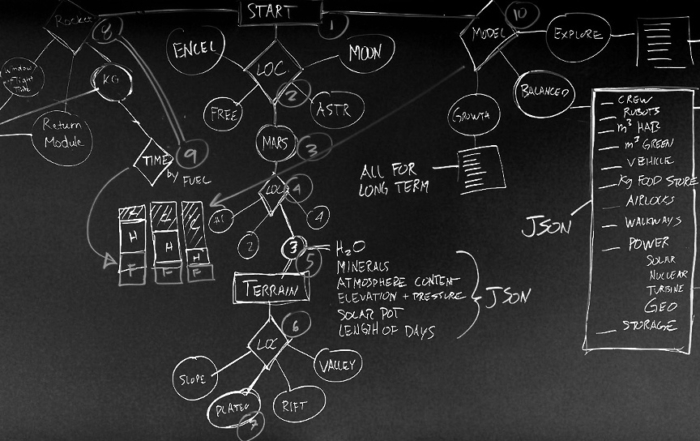 START
1
Rocket
MODEL
10
EXPLORE
ENCEL
MOON
LOC.
2
FREE
ASTR
KG
BALANCED
Return
Module
MARS
3
GROWTH
TIME
by
FUEL
9
ALL FOR
LONG TERM
LOC
4
2
3
4
5
H
H
H
F
F
F
TERRAIN
H₂O
MINERALS
ATMOSPHERE CONTENT
ELEVATION + PRESSURE
SOLAR POT
LENGTH OF DAYS
JSON
LOC
6
SLOPE
PLATEU
RIFT
VALLEY
JSON
CREW
ROBOTS
m³ HAB
m³ GREEN
VEHICLE
Kg FOOD STORE
AIRLOCKS
WALKWAYS
POWER
SOLAR
NUCLEAR
TURBINE
GEO
STORAGE